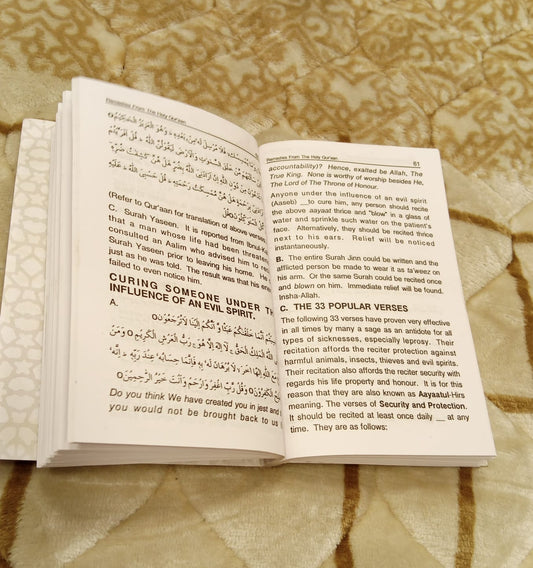 Remedies From The Holy Qur'aan
فَلَا مُرْسِلَ لَهٗ مِنْۢ بَعْدِهٖ ؕ وَهُوَ الْعَزِيْزُ الْحَكِيْمُ ○
خَلَقَ السَّمٰوٰتِ وَالْاَرْضَ لَيَقُوْلُنَّ اللّٰهُ ؕ قُلْ اَفَرَءَيْتُمْ
دُوْنِ اللّٰهِ اِنْ اَرَادَنِيَ اللّٰهُ بِضُرٍّ هَلْ هُنَّ كٰشِفٰتُ ضُرِّهٖٓ
هَلْ هُنَّ مُمْسِكٰتُ رَحْمَتِهٖ ؕ قُلْ حَسْبِيَ اللّٰهُ ؕ عَلَيْهِ
(Refer to Qur'aan for translation of above verses
C. Surah Yaseen. It is reported from Ibnul-K
that a man whose life had been threatened
consulted an Aalim who advised him to rec
Surah Yaseen prior to leaving his home. He
just as he was told. The result was that his ene
failed to even notice him.
CURING SOMEONE UNDER TH
INFLUENCE OF AN EVIL SPIRIT.
A.
اَنَّمَا خَلَقْنٰكُمْ عَبَثًا وَّ اَنَّكُمْ اِلَيْنَا لَا تُرْجَعُوْنَ ○
الْمَلِكُ الْحَقُّ ۚ لَآ اِلٰهَ اِلَّا هُوَ ۚ رَبُّ الْعَرْشِ الْكَرِيْمِ ○ وَمَنْ
اٰخَرَ ۙ لَا بُرْهَانَ لَهٗ بِهٖ ۙ فَاِنَّمَا حِسَابُهٗ عِنْدَ رَبِّهٖ ؕ اِنَّهٗ
الْكٰفِرُوْنَ ○ وَقُلْ رَّبِّ اغْفِرْ وَارْحَمْ وَاَنْتَ خَيْرُ الرّٰحِمِيْنَ ○
Do you think We have created you in jest and
you would not be brought back to us
Remedies From The Holy Qur'aan 61
accountability)? Hence, exalted be Allah, The
True King. None is worthy of worship besides He,
The Lord of The Throne of Honour.
Anyone under the influence of an evil spirit
(Aaseb) __to cure him, any person should recite
the above aayaat thrice and "blow" in a glass of
water and sprinkle such water on the patient's
face. Alternatively, they should be recited thrice
next to his ears. Relief will be noticed
instantaneously.
B. The entire Surah Jinn could be written and the
afflicted person be made to wear it as ta'weez on
his arm. Or the same Surah could be recited once
and blown on him. Immediate relief will be found.
Insha-Allah.
C. THE 33 POPULAR VERSES
The following 33 verses have proven very effective
in all times by many a sage as an antidote for all
types of sicknesses, especially leprosy. Their
recitation affords the reciter protection against
harmful animals, insects, thieves and evil spirits.
Their recitation also affords the reciter security with
regards his life property and honour. It is for this
reason that they are also known as Aayaatul-Hirs
meaning. The verses of Security and Protection.
It should be recited at least once daily __ at any
time. They are as follows: